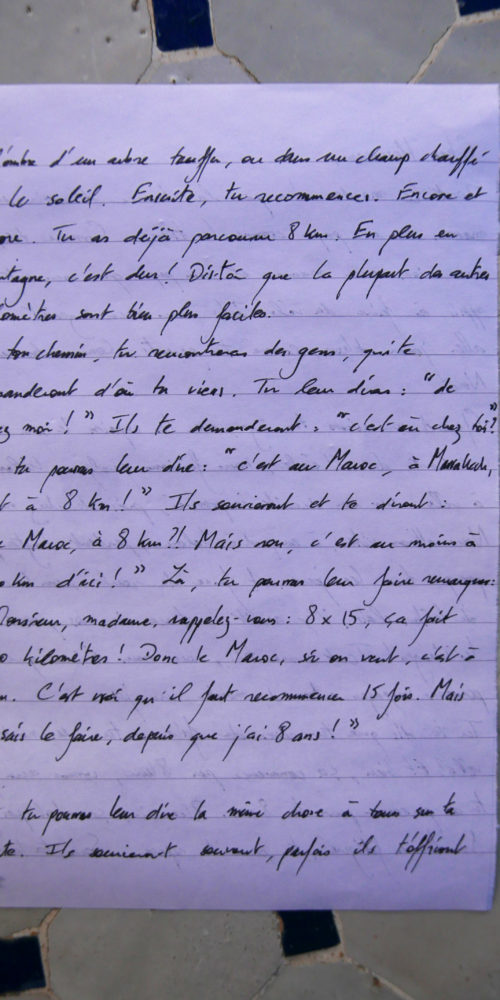 l'ombre d'un arbre touffu, ou dans un champ chauffé
le soleil. Ensuite, tu recommences. Encore et
ore. Tu as déjà parcouru 8 km. En plus en
ntagne, c'est dur! Dis-toi que la plupart des autres
omètres sont bien plus faciles.
ton chemin, tu rencontreras des gens, qui te
manderont d'où tu viens. Tu leur diras : "de
ez moi !" Ils te demanderont : "c'est où chez toi?"
tu pourras leur dire : "c'est au Maroc, à Marrakech,
t à 8 km !" Ils souriront et te diront :
Maroc, à 8 km?! Mais non, c'est au moins à
0 km d'ici !" Là, tu pourras leur faire remarquer:
Monsieur, madame, rappelez-vous : 8 x 15, ça fait
0 kilomètres! Donc le Maroc, si on veut, c'est à
m. C'est vrai qu'il faut recommencer 15 fois. Mais
sais le faire, depuis que j'ai 8 ans !"
tu pourras leur dire la même chose à tous sur ta
te. Ils souriront souvent, parfois ils t'offriront